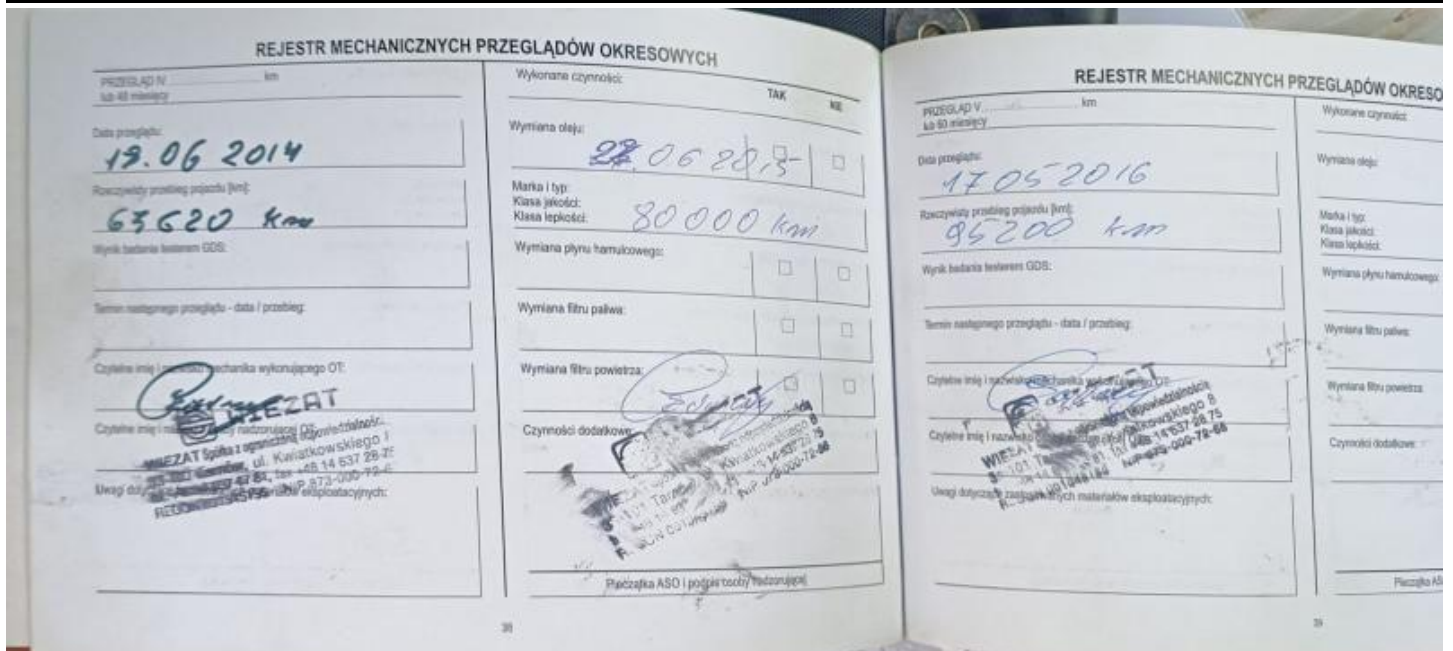 REJESTR MECHANICZNYCH PRZEGLĄDÓW OKRESOWYCH
PRZEGLĄD IV ............ km
lub 48 miesięcy
Data przeglądu:
19.06 2014
Rzeczywisty przebieg pojazdu [km]:
63620 km
Wynik badania testerem GDS:
Termin następnego przeglądu - data / przebieg:
Czytelne imię i nazwisko mechanika wykonującego OT:
WIEZAT
Czytelne imię i nadzorującej OT:
WIEZAT Spółka z ograniczoną odpowiedzialnośc.
ul. Kwiatkowskiego
fax +48 14 637 28
NIP 873-000-72-
Uwagi eksploatacyjnych:
Wykonane czynności:
TAK NIE
Wymiana oleju:
06 2015
Marka i typ:
Klasa jakości:
Klasa lepkości:
80000 km
Wymiana płynu hamulcowego:
Wymiana filtru paliwa:
Wymiana filtru powietrza:
Czynności dodatkowe:
Kwiatkowskiego 8
NIP 873-000-72-66
Pieczątka ASO i podpis osoby nadzorującej
38
REJESTR MECHANICZNYCH PRZEGLĄDÓW OKRESO
PRZEGLĄD V ............ km
lub 60 miesięcy
Data przeglądu:
17 05 2016
Rzeczywisty przebieg pojazdu [km]:
95200 km
Wynik badania testerem GDS:
Termin następnego przeglądu - data / przebieg:
Czytelne imię i nazwisko mechanika wykonującego OT:
Czytelne imię i nazwisko
odpowiedzialnością
Kwiatkowskiego 8
48 14 637 28 75
NIP 873-000-72-66
Uwagi dotyczące zastosowanych materiałów eksploatacyjnych:
Wykonane czynności:
Wymiana oleju:
Marka i typ:
Klasa jakości:
Klasa lepkości:
Wymiana płynu hamulcowego:
Wymiana filtru paliwa:
Wymiana filtru powietrza:
Czynności dodatkowe:
Pieczątka AS
39